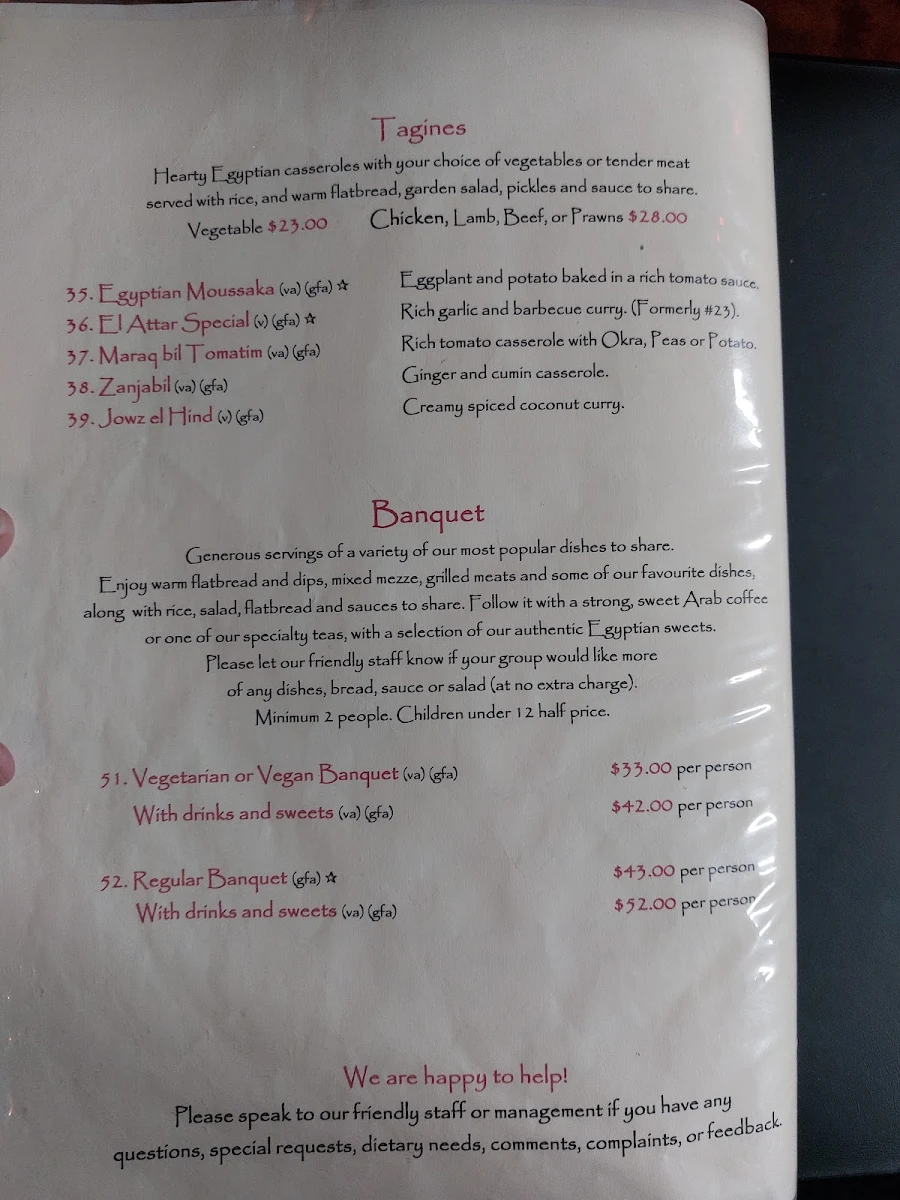 Tagines
Hearty Egyptian casseroles with your choice of vegetables or tender meat
served with rice, and warm flatbread, garden salad, pickles and sauce to share.
Vegetable $23.00 Chicken, Lamb, Beef, or Prawns $28.00
35. Egyptian Moussaka (va) (gfa) ☆ Eggplant and potato baked in a rich tomato sauce.
36. El Attar Special (v) (gfa) ☆ Rich garlic and barbecue curry. (Formerly #23).
37. Maraq bil Tomatim (va) (gfa) Rich tomato casserole with Okra, Peas or Potato.
38. Zanjabil (va) (gfa) Ginger and cumin casserole.
39. Jowz el Hind (v) (gfa) Creamy spiced coconut curry.
Banquet
Generous servings of a variety of our most popular dishes to share.
Enjoy warm flatbread and dips, mixed mezze, grilled meats and some of our favourite dishes,
along with rice, salad, flatbread and sauces to share. Follow it with a strong, sweet Arab coffee
or one of our specialty teas, with a selection of our authentic Egyptian sweets.
Please let our friendly staff know if your group would like more
of any dishes, bread, sauce or salad (at no extra charge).
Minimum 2 people. Children under 12 half price.
51. Vegetarian or Vegan Banquet (va) (gfa) $33.00 per person
With drinks and sweets (va) (gfa) $42.00 per person
52. Regular Banquet (gfa) ☆ $43.00 per person
With drinks and sweets (va) (gfa) $52.00 per person
We are happy to help!
Please speak to our friendly staff or management if you have any
questions, special requests, dietary needs, comments, complaints, or feedback.